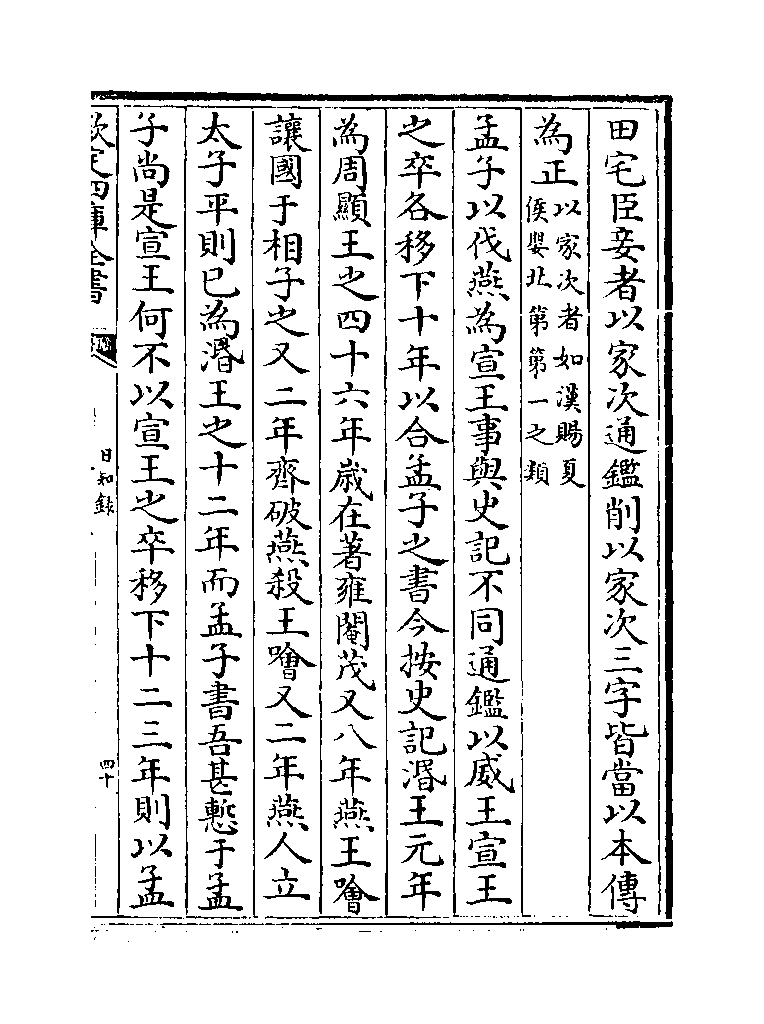 田宅臣妾者以家次通鑑削以家次三字皆當以本傳
為正以家次者如漢賜夏
侯嬰北第第一之類
孟子以伐燕為宣王事與史記不同通鑑以威王宣王
之卒各移下十年以合孟子之書今按史記湣王元年
為周顯王之四十六年歲在著雍閹茂又八年燕王噲
讓國于相子之又二年齊破燕殺王噲又二年燕人立
太子平則已為湣王之十二年而孟子書吾甚慙于孟
子尚是宣王何不以宣王之卒移下十二三年則以孟
欽定四庫全書
日知錄
四十